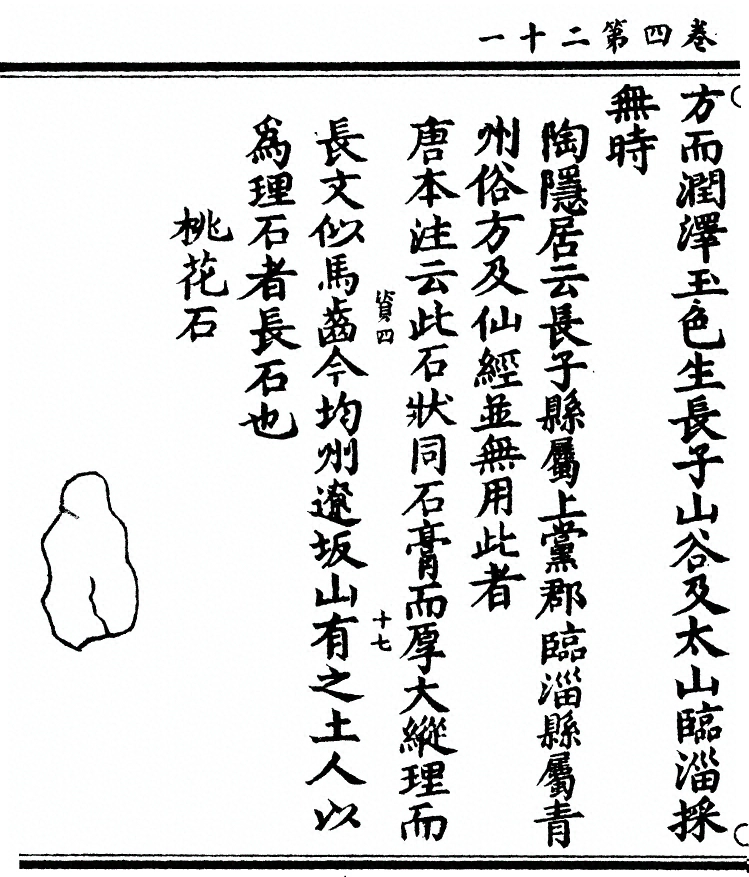 卷四第二十一
方而潤澤玉色生長子山谷及太山臨淄採
無時
陶隱居云長子縣屬上黨郡臨淄縣屬青
州俗方及仙經並無用此者
唐本注云此石狀同石膏而厚大縱理而
貲四
十七
長文似馬齒今均州遼坂山有之土人以
爲理石者長石也
桃花石